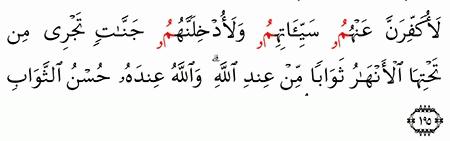 لَأُكَفِّرَنَّ عَنْهُمُۥ سَيِّـَٔاتِهِمُۥ وَلَأُدْخِلَنَّهُمُۥ جَنَّـٰتٍ تَجْرِى مِن
تَحْتِهَا ٱلْأَنْهَـٰرُ ثَوَابًا مِّنْ عِندِ ٱللَّهِ ۗ وَٱللَّهُ عِندَهُۥ حُسْنُ ٱلثَّوَابِ
١٩٥